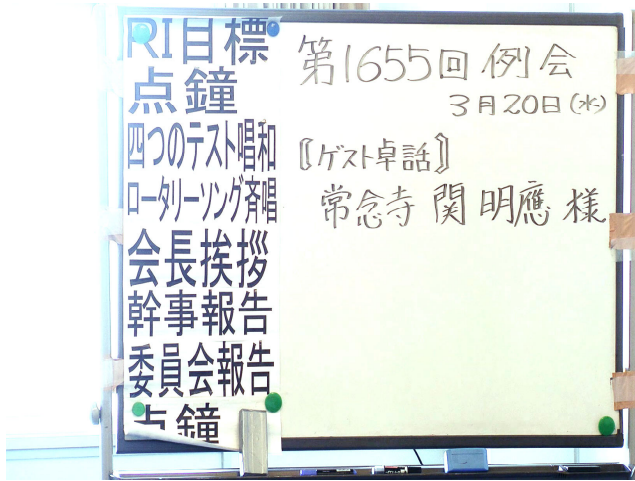 RI目標
点鐘
四つのテスト唱和
ロータリーソング斉唱
会長挨拶
幹事報告
委員会報告
点鐘
第1655回 例会
3月20日(水)
〖ゲスト卓話〗
常念寺 関 明應 様